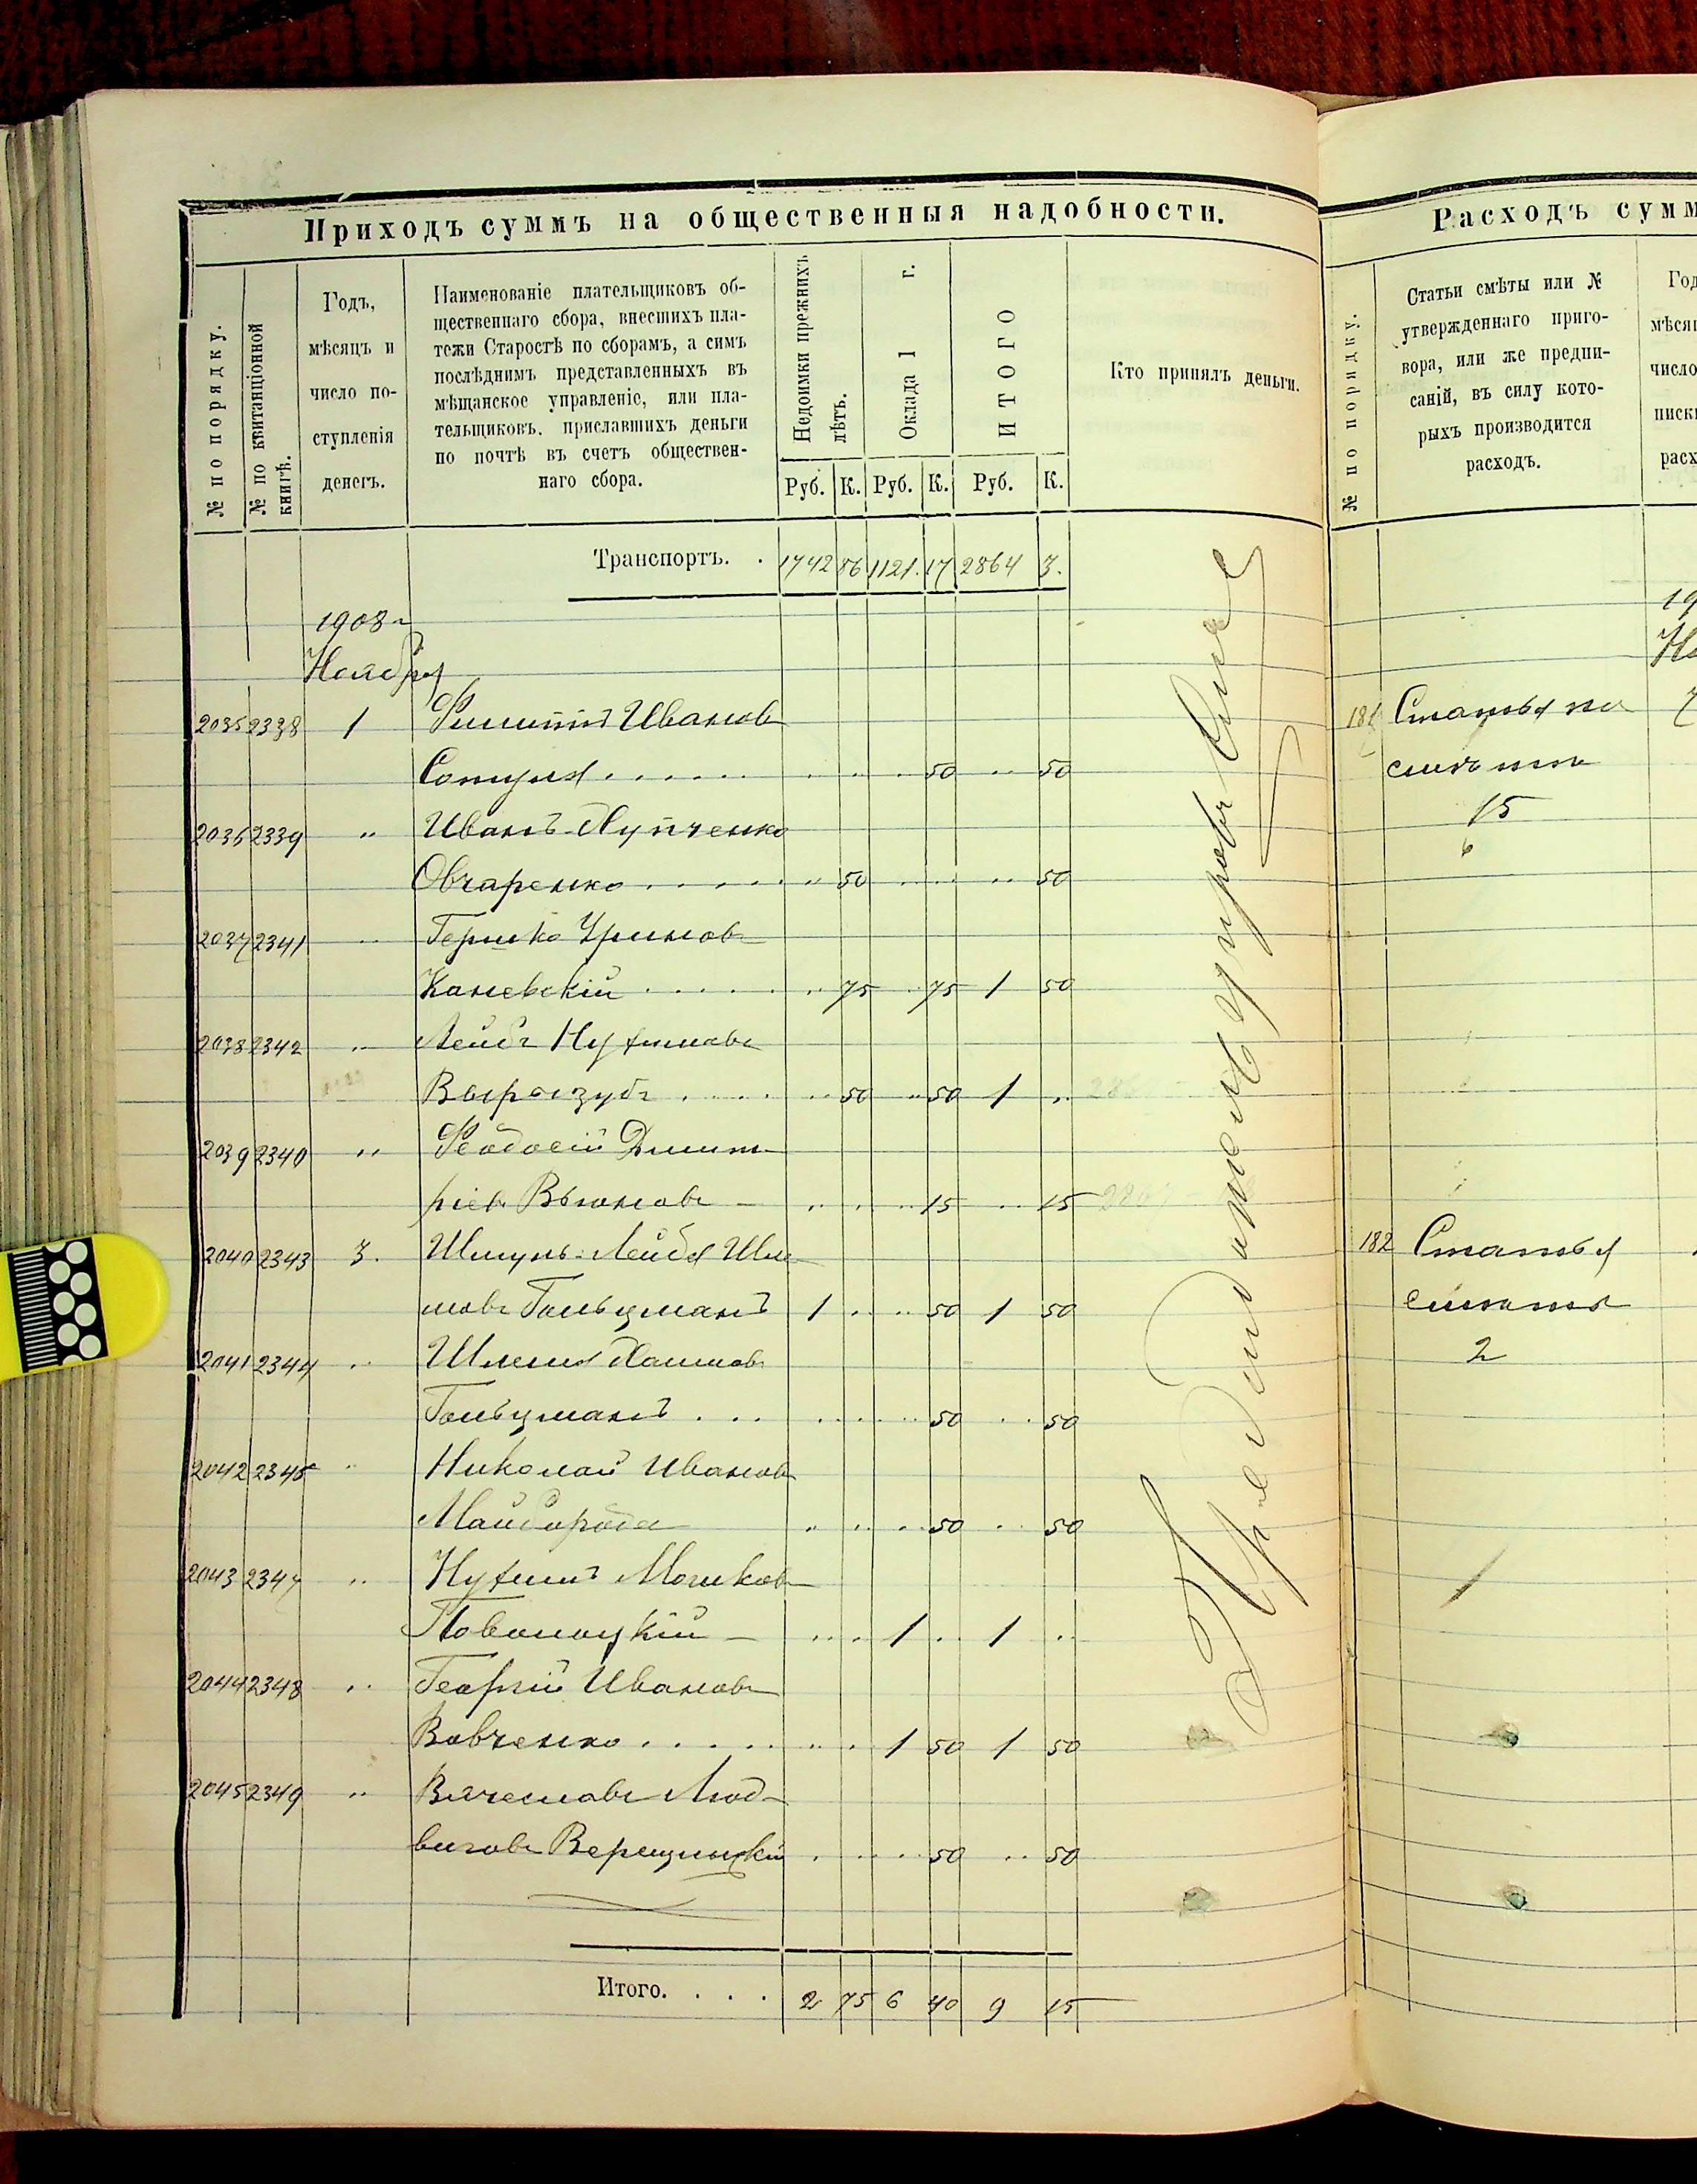 Приходъ суммъ на общественныя надобности.
№ по порядку.
№ по квитанціонной книгѣ.
Годъ,
мѣсяцъ и
число по-
ступленія
денегъ.
Наименованіе плательщиковъ об-
щественнаго сбора, внесшихъ пла-
тежи Старостѣ по сборамъ, а симъ
послѣднимъ представленныхъ въ
мѣщанское управленіе, или пла-
тельщиковъ, приславшихъ деньги
по почтѣ въ счетъ обществен-
наго сбора.
Недоимки прежнихъ лѣтъ.
Оклада 1 г.
ИТОГО
Руб. К. Руб. К. Руб. К.
Кто принялъ деньги.
Транспортъ. . 1742 86 1121. 17 2864 3.
1908 г
Ноября
2035 2338 1 Филиппъ Ивановъ
50 50
2036 2339 " Иванъ
Овчаренко " 50 50
2037 2341 " Гершко Уриновъ
Каневскій 75 75 1 50
2038 2342 " Лейбъ Нухимовъ
Вырвизубъ 50 50 1 "
2039 2340 " Феодосій Дмит-
ріевъ Вьюновъ 15 15
2040 2343 3. Шмуль-Лейба
мовъ Гольцманъ 1 50 1 50
2041 2344 " Шлема Хаимовъ
Гольцманъ . . . 50 50
2042 2345 " Николай Ивановъ
Майборода 50 50
2043 2347 " Нухимъ Мошковъ
Поволоцкій 1 1
2044 2348 " Георгій Ивановъ
Вовченко 1 50 1 50
2045 2349 " Вячеславъ Люд-
виговъ Верещинскій 50 50
Итого. . . . 2 75 6 40 9 15
Расходъ сумм
№ по порядку.
Статьи смѣты или №
утвержденнаго приго-
вора, или же предпи-
саній, въ силу кото-
рыхъ производится
расходъ.
Год
мѣсяц
число
писк
расх
19
Но
181 Статья по
смѣтѣ
15
6
182 Статья
смѣты
2